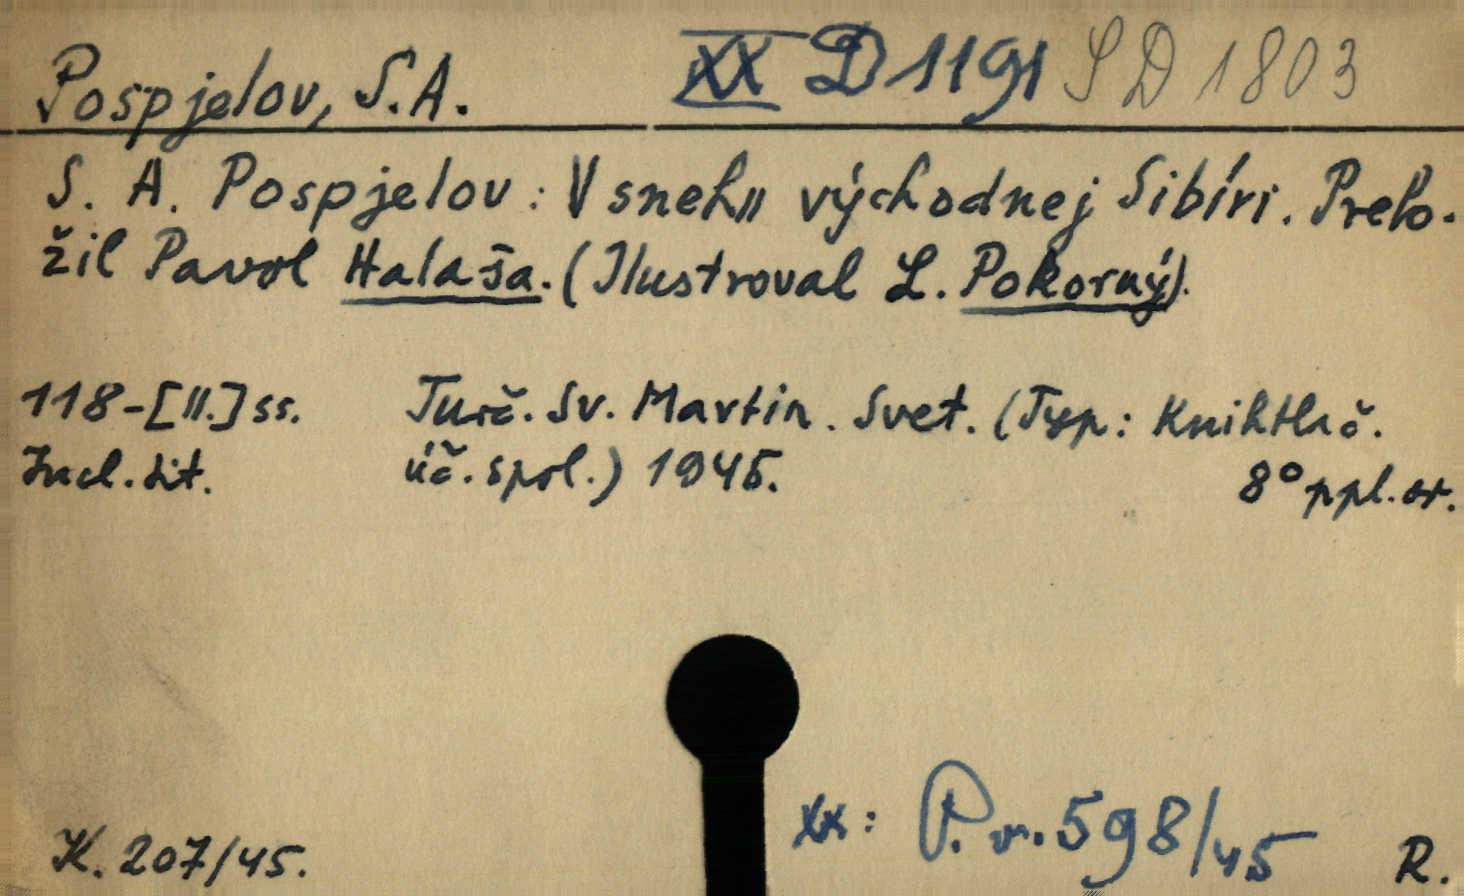 Pospjelov, S.A. XX D 1191 SD 1803
S. A. Pospjelov: V sneh|| východnej Sibíri. Prelo-
žil Pavol Halaša. (Ilustroval L. Pokorný).
118-[II.] ss. Turč. Sv. Martin. Svet. (Typ: Knihtlač.
Incl. tit. úč. spol.) 1945. 8° ppl. or.
xx: P. v. 598/45
K. 207/45. R.